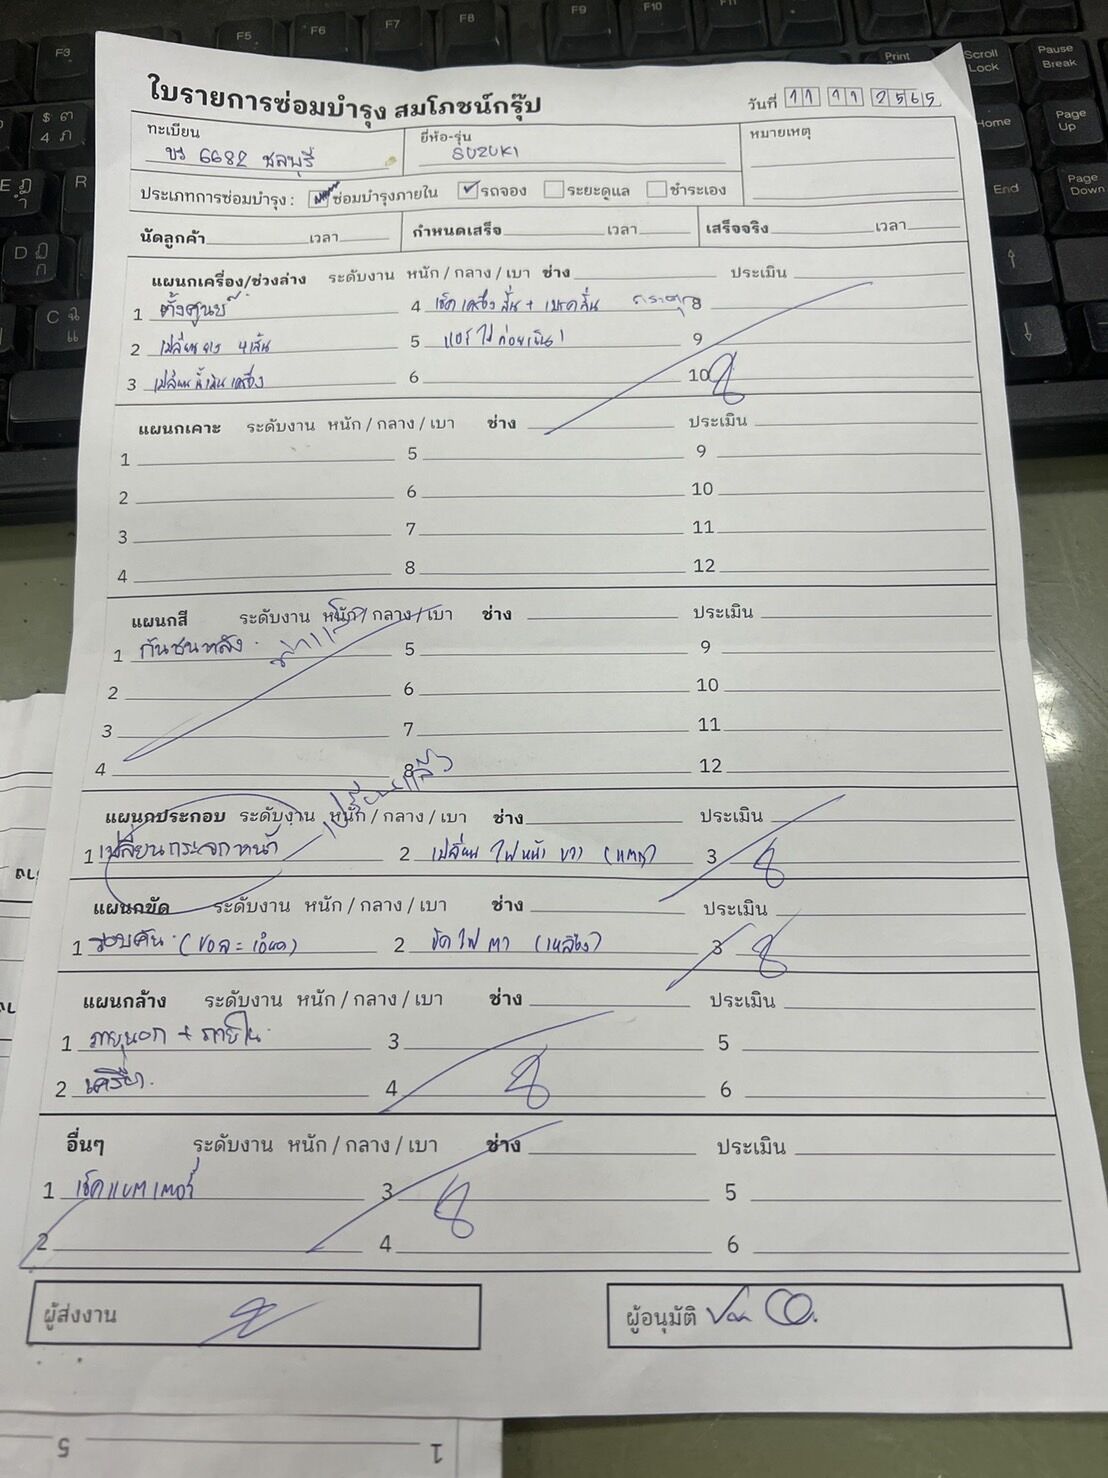 ใบรายการซ่อมบำรุง สมโภชน์กรุ๊ป
วันที่ 11 11 2565
ทะเบียน
6682 ชลบุรี
ยี่ห้อ-รุ่น
SUZUKI
หมายเหตุ
ประเภทการซ่อมบำรุง : ซ่อมบำรุงภายใน รถจอง ระยะดูแล ชำระเอง
นัดลูกค้า เวลา กำหนดเสร็จ เวลา เสร็จจริง เวลา
แผนกเครื่อง/ช่วงล่าง ระดับงาน หนัก / กลาง / เบา ช่าง ประเมิน
1 ตั้งศูนย์ 4 เช็คเครื่องสั่น + เบรคสั่น 8
2 เปลี่ยนยาง 4เส้น 5 แอร์ไม่ค่อยเย็น 9
3 เปลี่ยนน้ำมันเครื่อง 6 10
แผนกเคาะ ระดับงาน หนัก / กลาง / เบา ช่าง ประเมิน
1 5 9
2 6 10
3 7 11
4 8 12
แผนกสี ระดับงาน หนัก / กลาง / เบา ช่าง ประเมิน
1 กันชนหลัง 5 9
2 6 10
3 7 11
4 8 12
เปลี่ยนแล้ว
แผนกประกอบ ระดับงาน หนัก / กลาง / เบา ช่าง ประเมิน
1 เปลี่ยนกระจกหน้า 2 เปลี่ยนไฟหน้า ขวา (แตก) 3
แผนกขัด ระดับงาน หนัก / กลาง / เบา ช่าง ประเมิน
1 รอบคัน 2 ขัดไฟตา (เหลือง) 3
แผนกล้าง ระดับงาน หนัก / กลาง / เบา ช่าง ประเมิน
1 ภายนอก + ภายใน 3 5
2 เครื่อง 4 6
อื่นๆ ระดับงาน หนัก / กลาง / เบา ช่าง ประเมิน
1 เช็คแบตเตอรี่ 3 5
2 4 6
ผู้ส่งงาน ผู้อนุมัติ